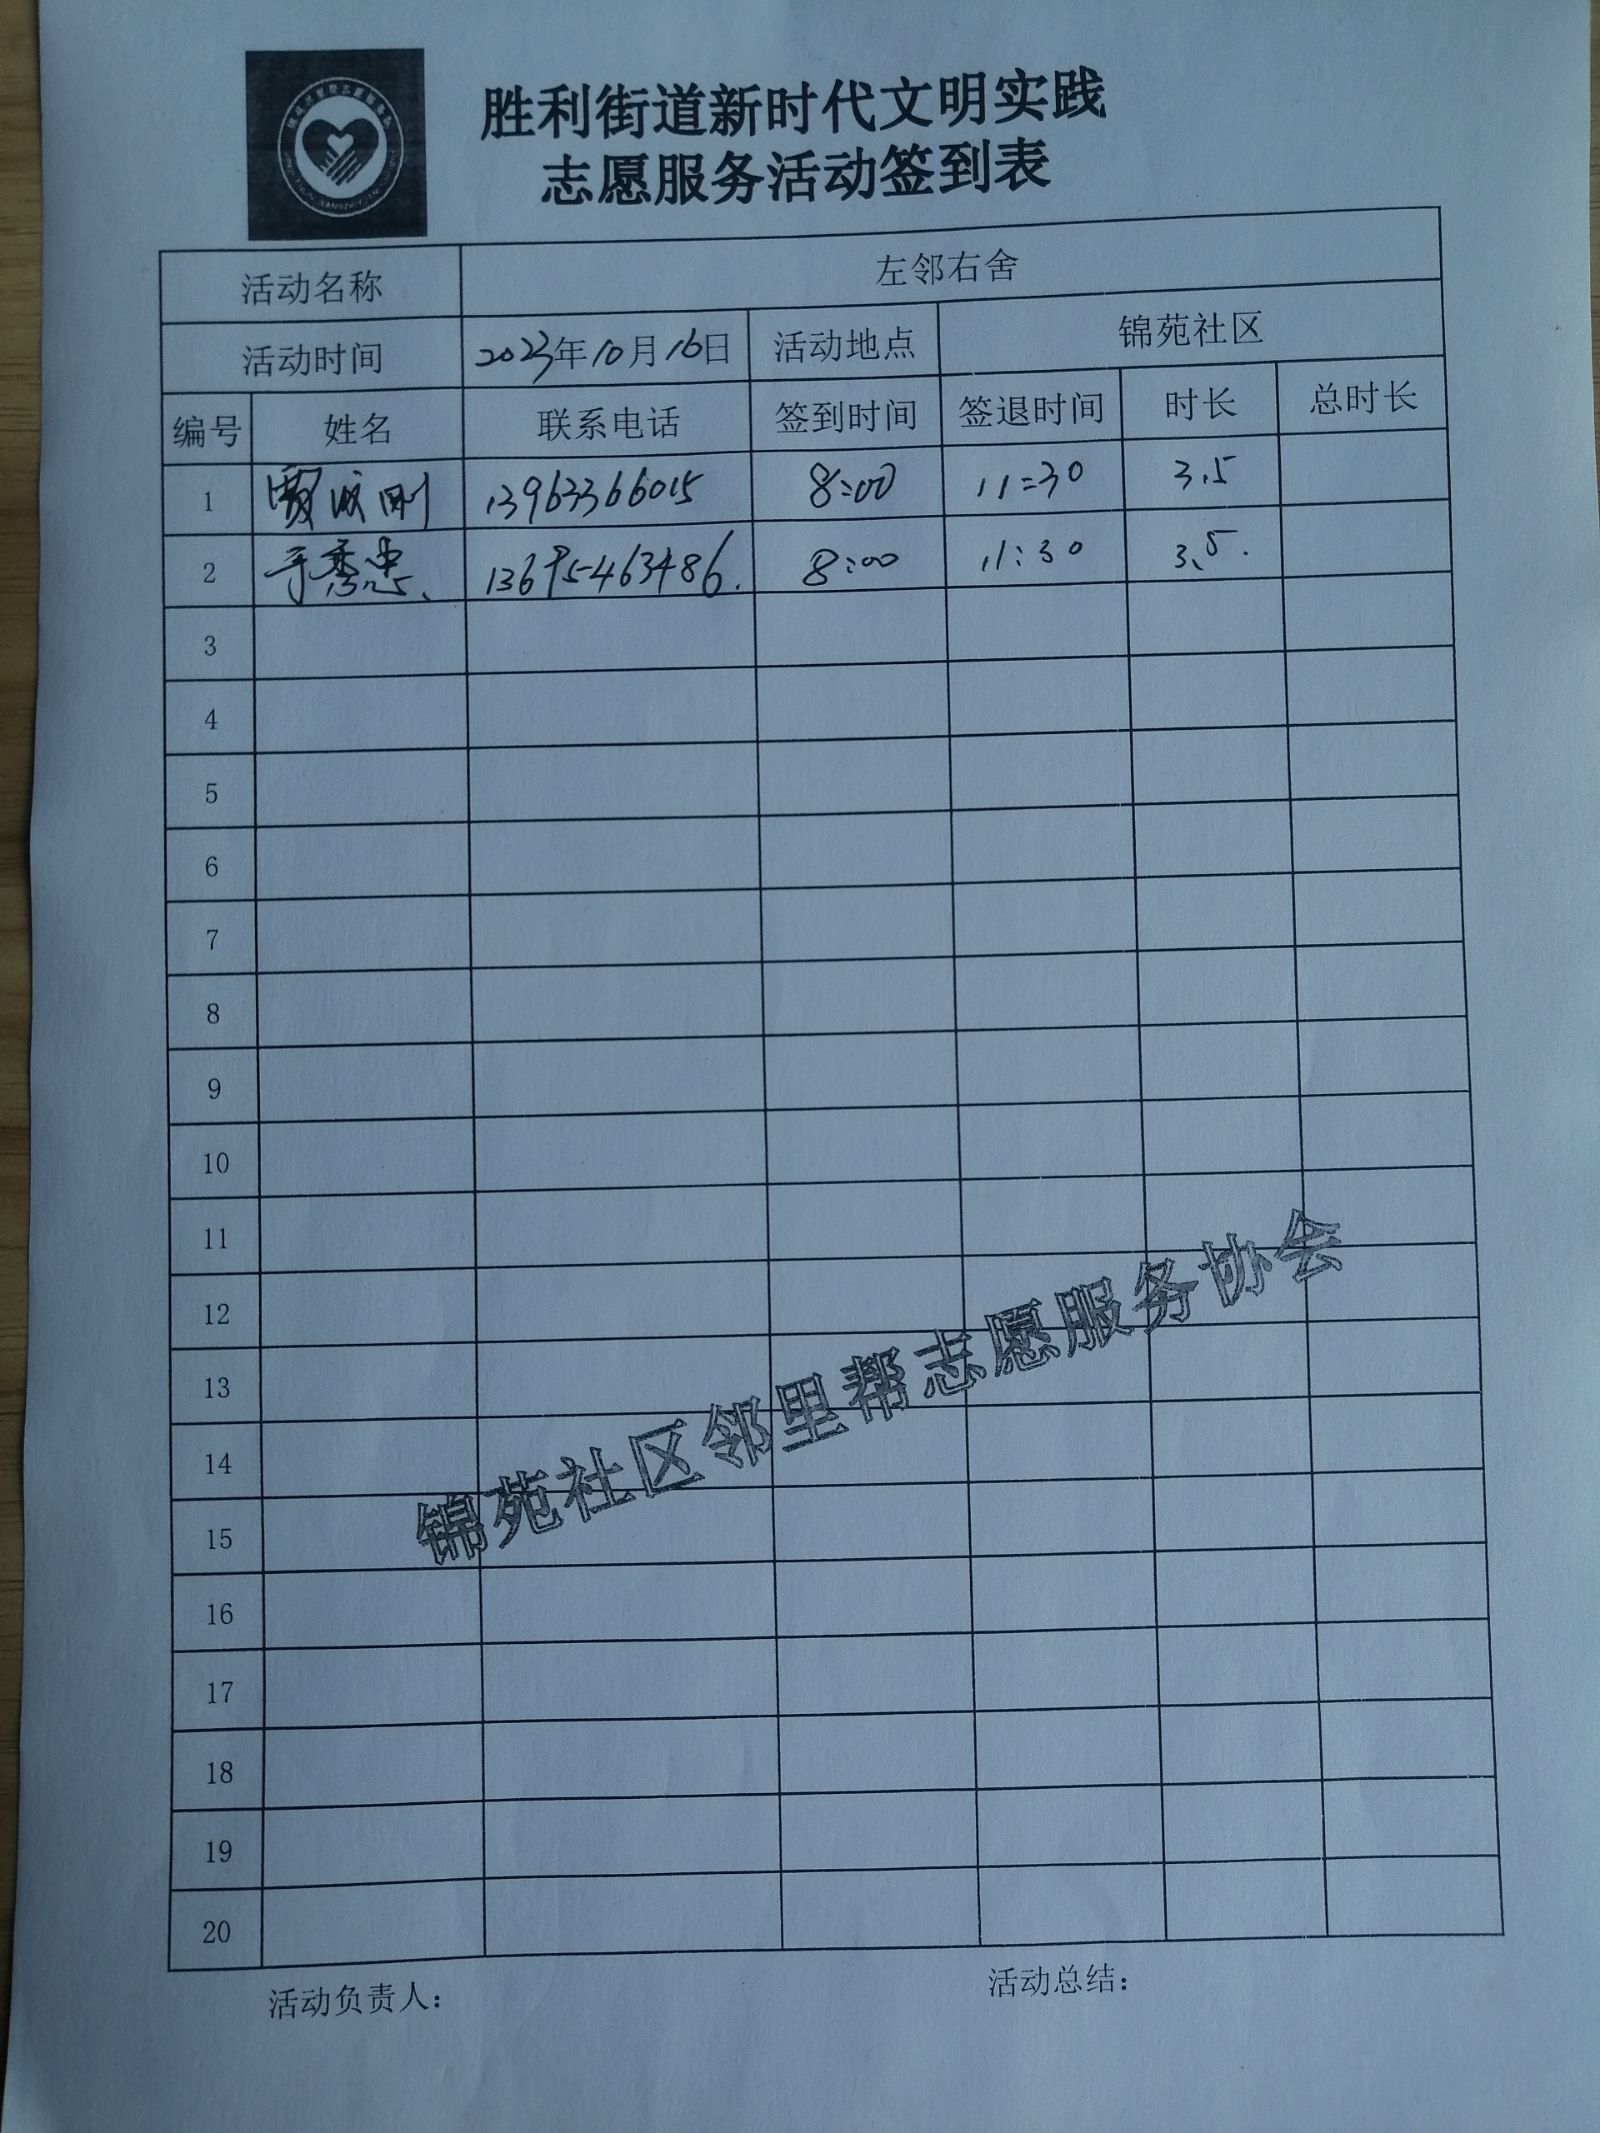 胜利街道新时代文明实践
志愿服务活动签到表
活动名称 左邻右舍
活动时间 2023年10月16日 活动地点 锦苑社区
编号 姓名 联系电话 签到时间 签退时间 时长 总时长
1 贾波刚 13963366015 8:00 11:30 3.5
2 于秀忠 8:00 11:30 3.5
3
4
5
6
7
8
9
10
11
12
13
14
15
16
17
18
19
20
锦苑社区邻里帮志愿服务协会
活动负责人: 活动总结: